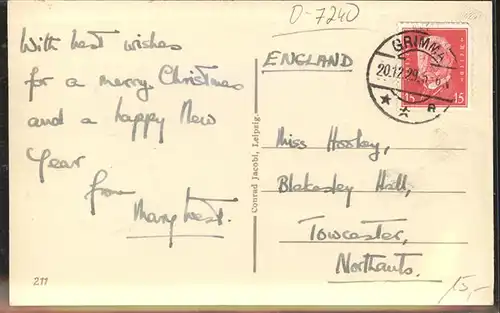 D-7240
With best wishes
for a merry Christmas
and a happy New
Year
from
Mary West.
211
Conrad Jacobi, Leipzig.
ENGLAND
GRIMMA
20.12.29.
* *
15 15
Miss
Blakesley Hall,
Towcester,
Northants.
15,-